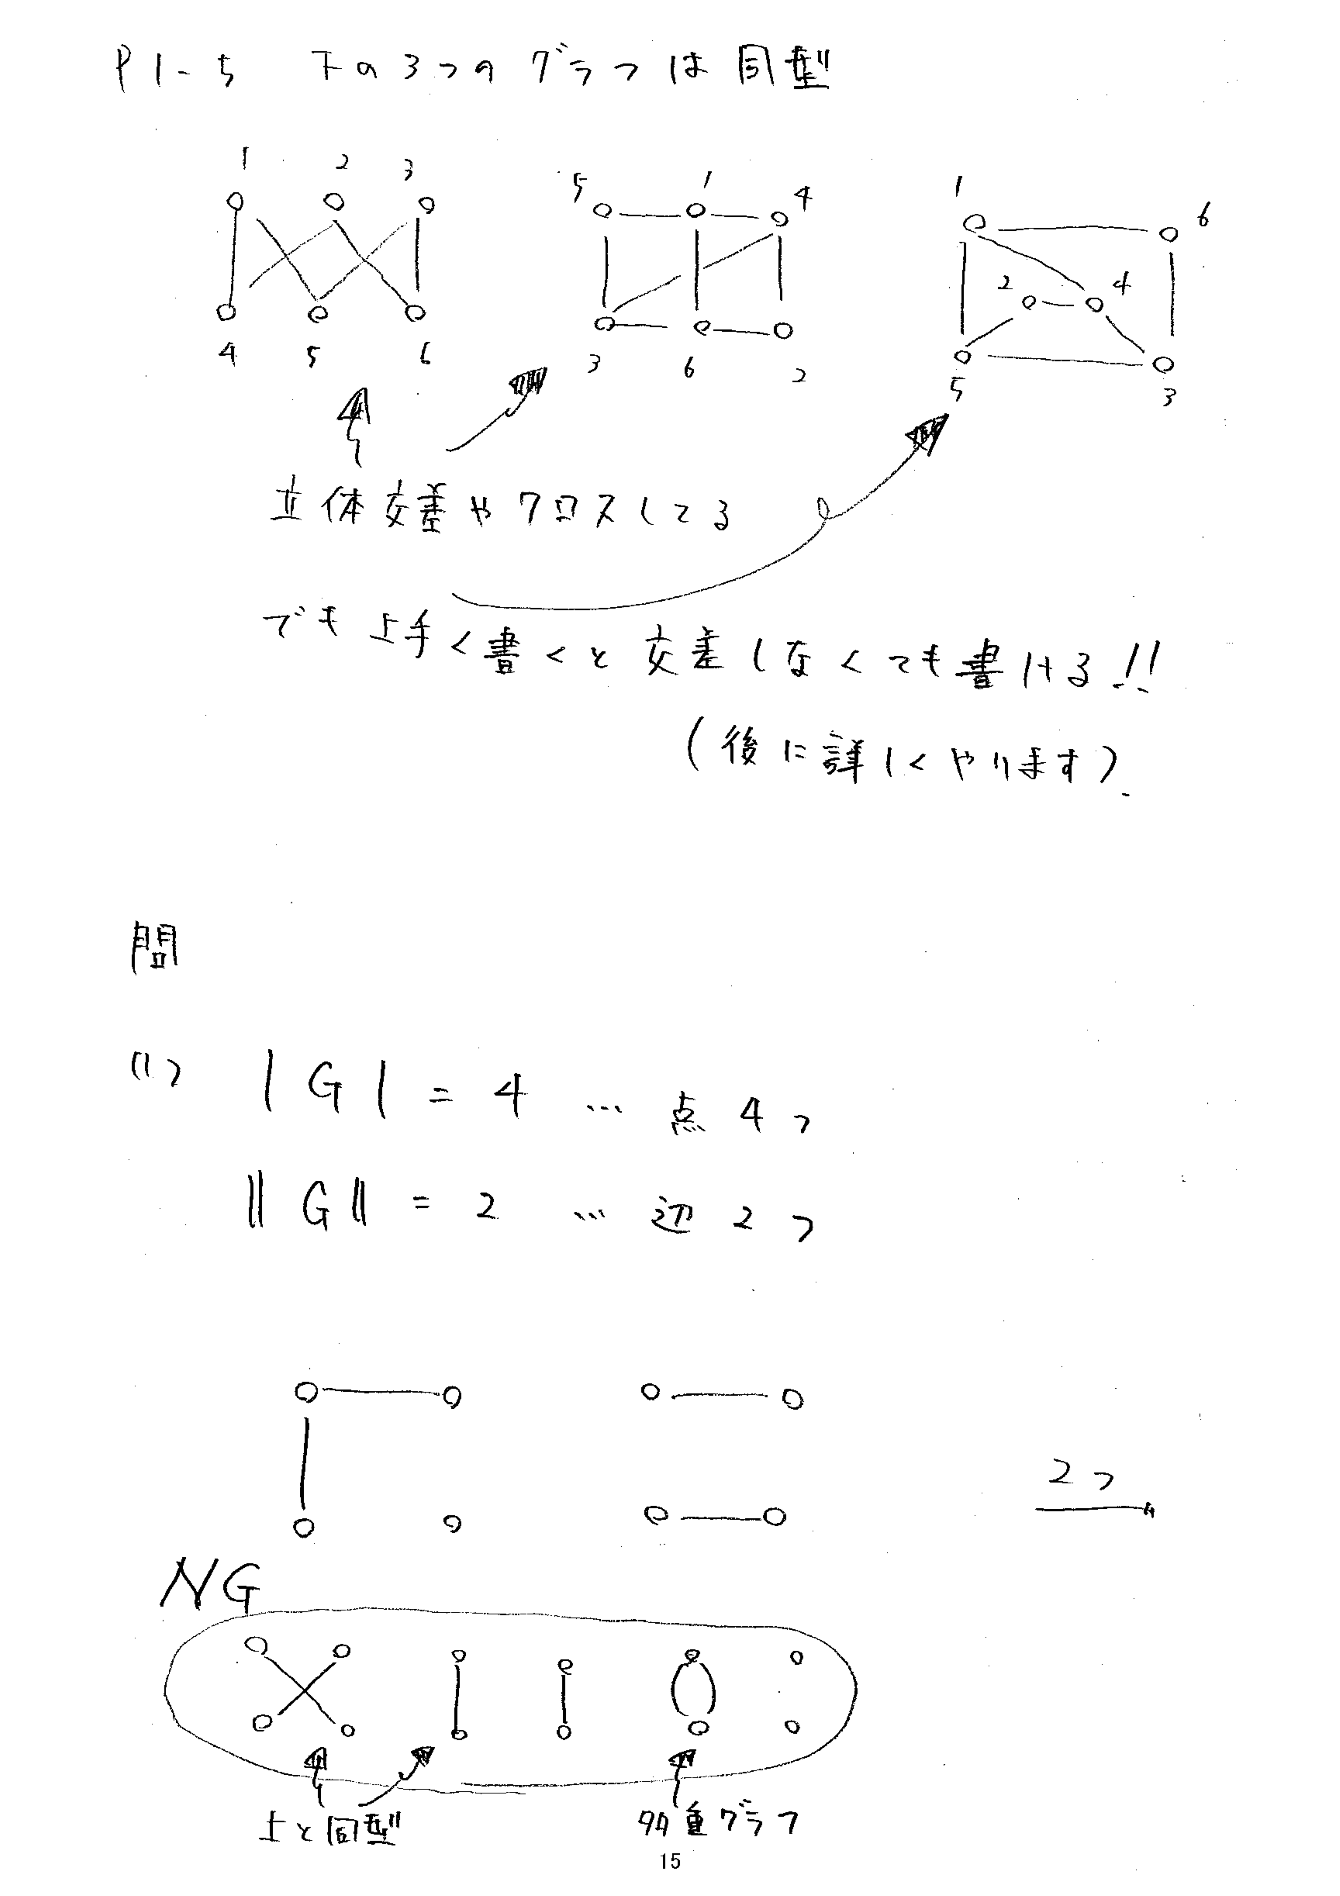 P1-5 下の3つのグラフは同型
1 2 3
4 5 6
5 1 4
3 6 2
1 6
2 4
5 3
立体交差やクロスしてる
でも上手く書くと交差しなくても書ける!!
(後に詳しくやります).
問
(1) |G| = 4 … 点4つ
||G|| = 2 … 辺2つ
2つ
NG
上と同型
多重グラフ
15